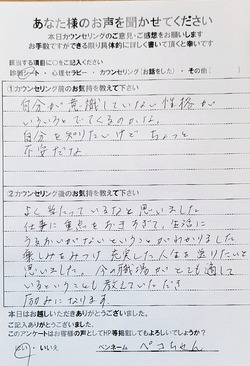 あなた様のお声を聞かせてください
本日カウンセリングのご意見・ご感想をお願いします
お手数ですができる限り具体的に詳しく書いて頂くと幸いです
該当する項目に○をご記入ください
診断シート・心理セラピー・カウンセリング(お話をした)・その他(
①カウンセリング前のお気持を教えて下さい
自分が意識していない性格が
いろいろとでてくるのかな。
自分を知りたいけど ちょっと
不安だな
②カウンセリング後のお気持を教えて下さい
よく当たっているなと思いました
仕事に重点をおきすぎて、生活に
うるおいがないということがわかりました
楽しみをみつけ 充実した人生を送りたいと
思いました。今の職場がとても適して
いるということも教えていただき
励みになります。
本日はお越しいただきありがとうございました。
ご記入ありがとうございました。
このアンケートはお客様の声としてHP等掲載してもよろしいでしょうか?
はい・いいえ ペンネーム ペコちゃん